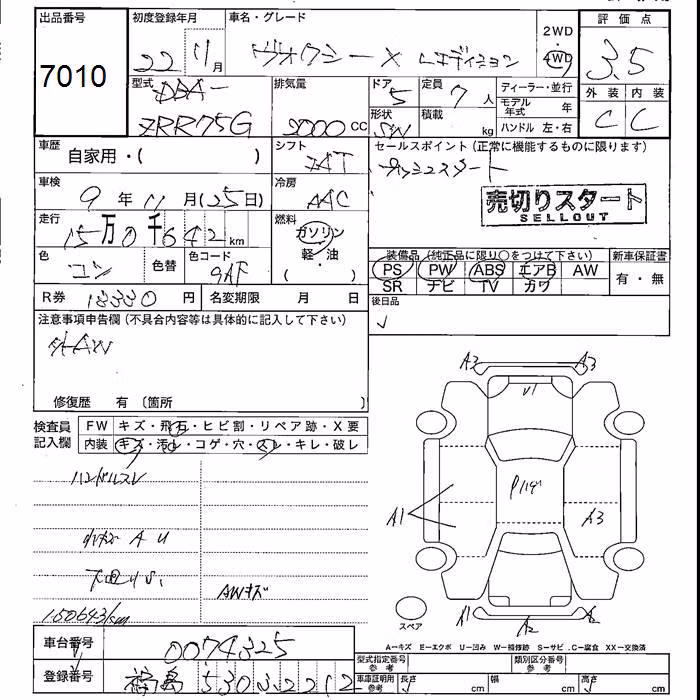 出品番号 初度登録年月 車名・グレード 評価点
7010
22 11月 ヴォクシー X Lエディション 2WD 4WD 3.5
型式 DBA- 排気量 ドア 5 定員 7人 ディーラー・並行 外装 内装
ZRR75G 2000 CC 形状 SW 積載 kg モデル年式 年 C C
ハンドル 左・右
車歴 自家用・( ) シフト FAT セールスポイント(正常に機能するものに限ります)
プッシュスタート
車検 9年11月(25日) 冷房 AAC
売切りスタート
SELLOUT
走行 15万0千642km 燃料 ガソリン 軽・油
装備品(純正品に限り○をつけて下さい) 新車保証書
色 コン 色替 色コード 9AF
PS PW ABS エアB AW 有・無
SR ナビ TV カワ
R券 18330円 名変期限 月 日 後日品
注意事項申告欄(不具合内容等は具体的に記入して下さい)
外AW
修復歴 有(箇所 )
A2 A3
U1
検査員記入欄 FW キズ・飛石・ヒビ割・リペア跡・X要
内装 キズ・汚れ・コゲ・穴・スレ・キレ・破レ
ハンドルスレ
A1 A3
AU
AWキズ
150643km
A1 A2 A2
スペア
A-キズ E-エクボ U-凹み W-補修跡 S-サビ C-腐食 XX-交換済
車台番号 0074325 型式指定番号 参考 類別区分番号 参考
登録番号 福島 530 ス 2212 車庫証明用 参考 長さ cm 幅 cm 高さ cm